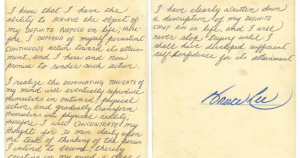 I know that I have the
ability to ACHIEVE the object of
my DEFINITE PURPOSE in life; there-
fore I DEMAND of myself persistent
CONTINUOUS action toward its attain-
ment, and I here and now
promise to render such action.
I realize the DOMINATING THOUGHTS of
my mind will eventually reproduce
themselves in outward, physical
action, and gradually transform
themselves into physical reality;
therefore I will CONCENTRATE my
thoughts for 30 min. daily upon
the task of thinking of the person
I intend to become, thereby
creating in my mind a clear
I have clearly written down
a description of my DEFINITE
CHIEF AIM in life, and I will
never stop trying until I
shall have developed sufficient
self-confidence for its attainment
Bruce Lee